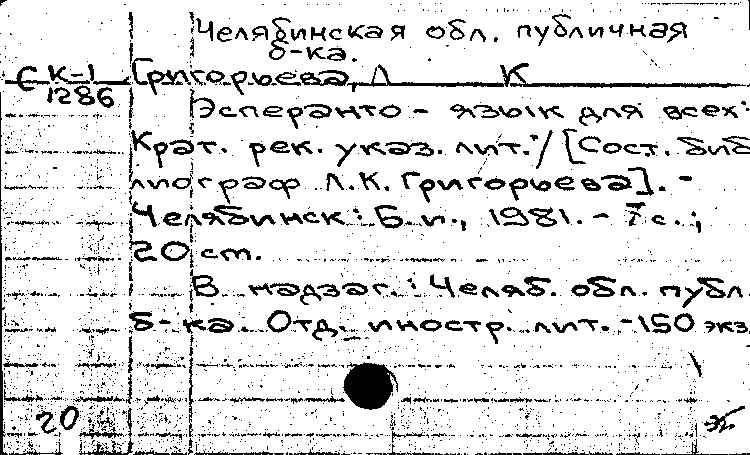 Челябинская обл. публичная
б-ка.
С К-1 Григорьева, Л К
1286
Эсперанто - язык для всех:
Крат. рек. указ. лит. / [Сост. биб
лиограф Л.К. Григорьева]. -
Челябинск: Б. и., 1981. - 7 с.;
20 cm.
В надзаг.: Челяб. обл. публ.
б-ка. Отд. иностр. лит. - 150 экз
20